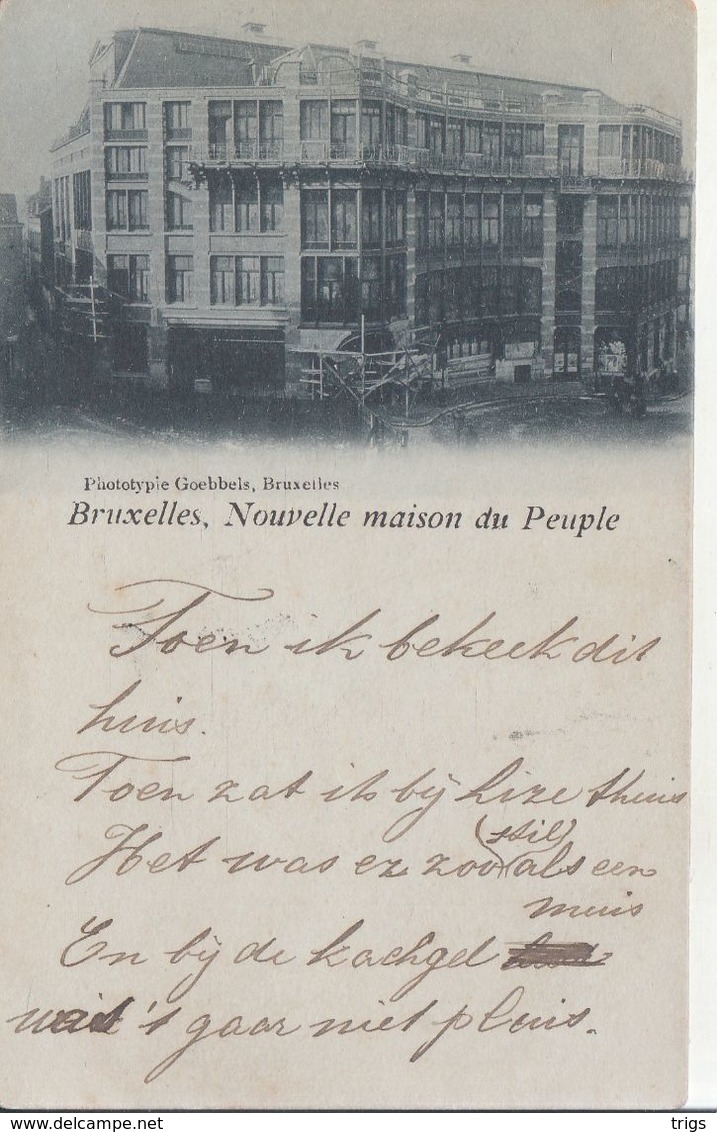 Phototypie Goebbels, Bruxelles
Bruxelles, Nouvelle maison du Peuple
Toen ik bekeek dit
huis.
Toen zat ik bij Lize thuis
(stil)
Het was er zoo als een
muis
En bij de kachgel
was 't gaar niet pluis.
www.delcampe.net
trigs